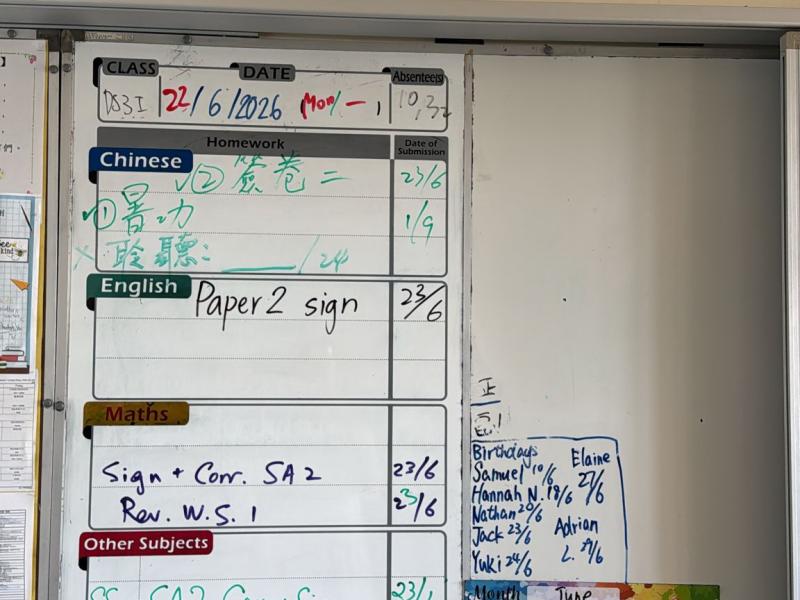 CLASS DATE Absentee(s)
DS3I 22/6/2026 (Mon/一) 10,32
Homework Date of Submission
Chinese
✓② 簽卷二 23/6
✓① 暑功 1/9
× 聆聽: ____/24
English
Paper 2 sign 23/6
Maths
Sign + Corr. SA2 23/6
Rev. W.S. 1 23/6
Other Subjects
SA2 23/
正
Birthdays
Samuel 10/6
Hannah N. 18/6
Nathan 20/6
Jack 23/6
Yuki 24/6
Elaine 27/6
Adrian L. 29/6
Month June